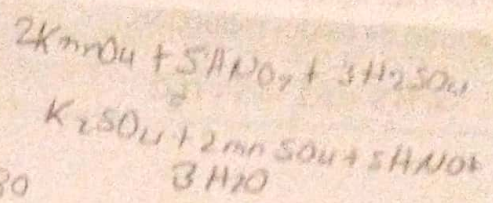 2KmnO4 + 5HNO2 + 3H2SO4
K2SO4 + 2mnSO4 + 5HNO3
3H2O
80